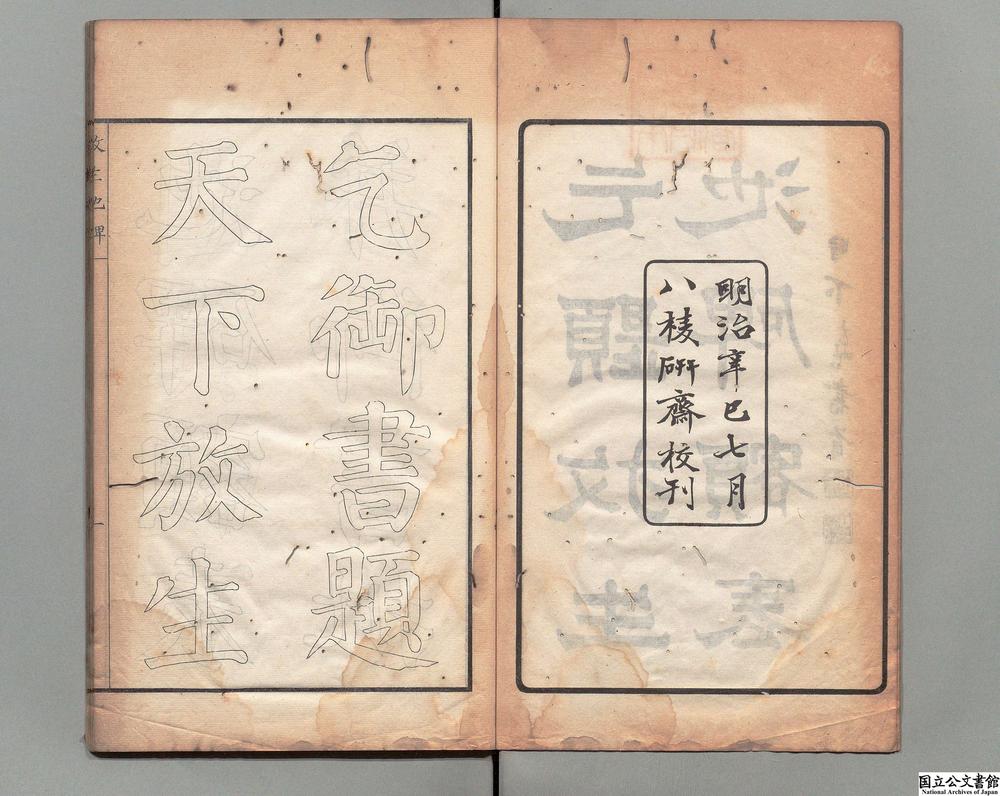 明治辛巳七月
八稜研齋校刊
乞御書題
天下放生
放生池碑
一
国立公文書館
National Archives of Japan